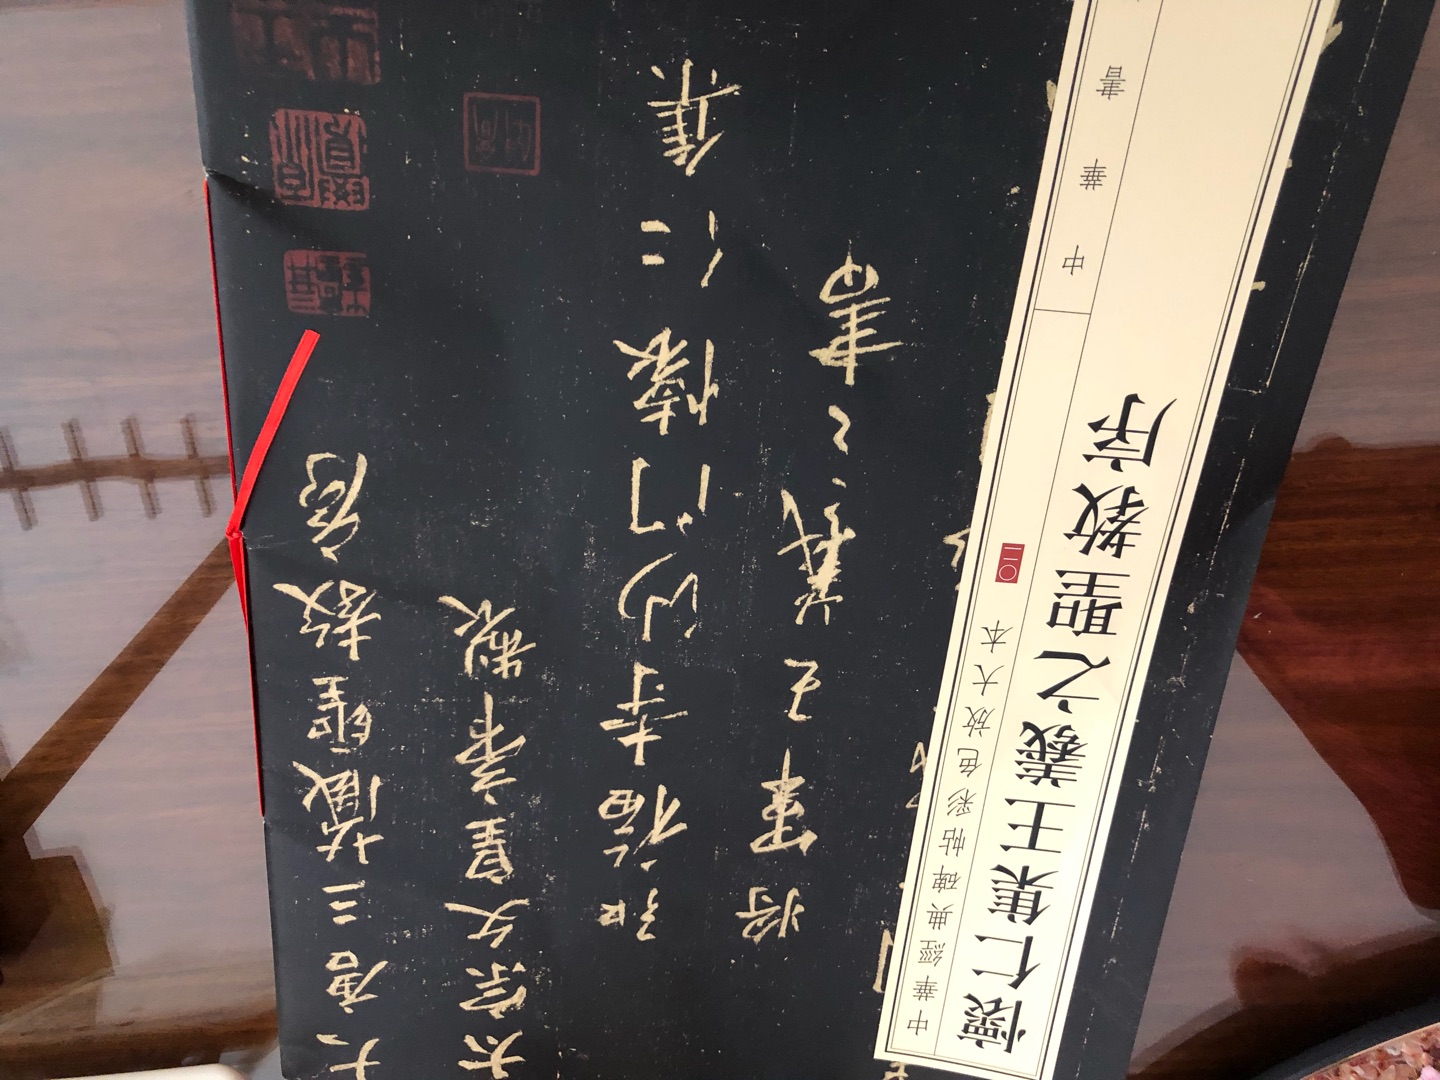 大唐三藏聖教序
太宗文皇帝製
弘福寺沙門懷仁集
將軍王羲之書
中華經典碑帖彩色放大本
懷仁集王羲之聖教序
中華書